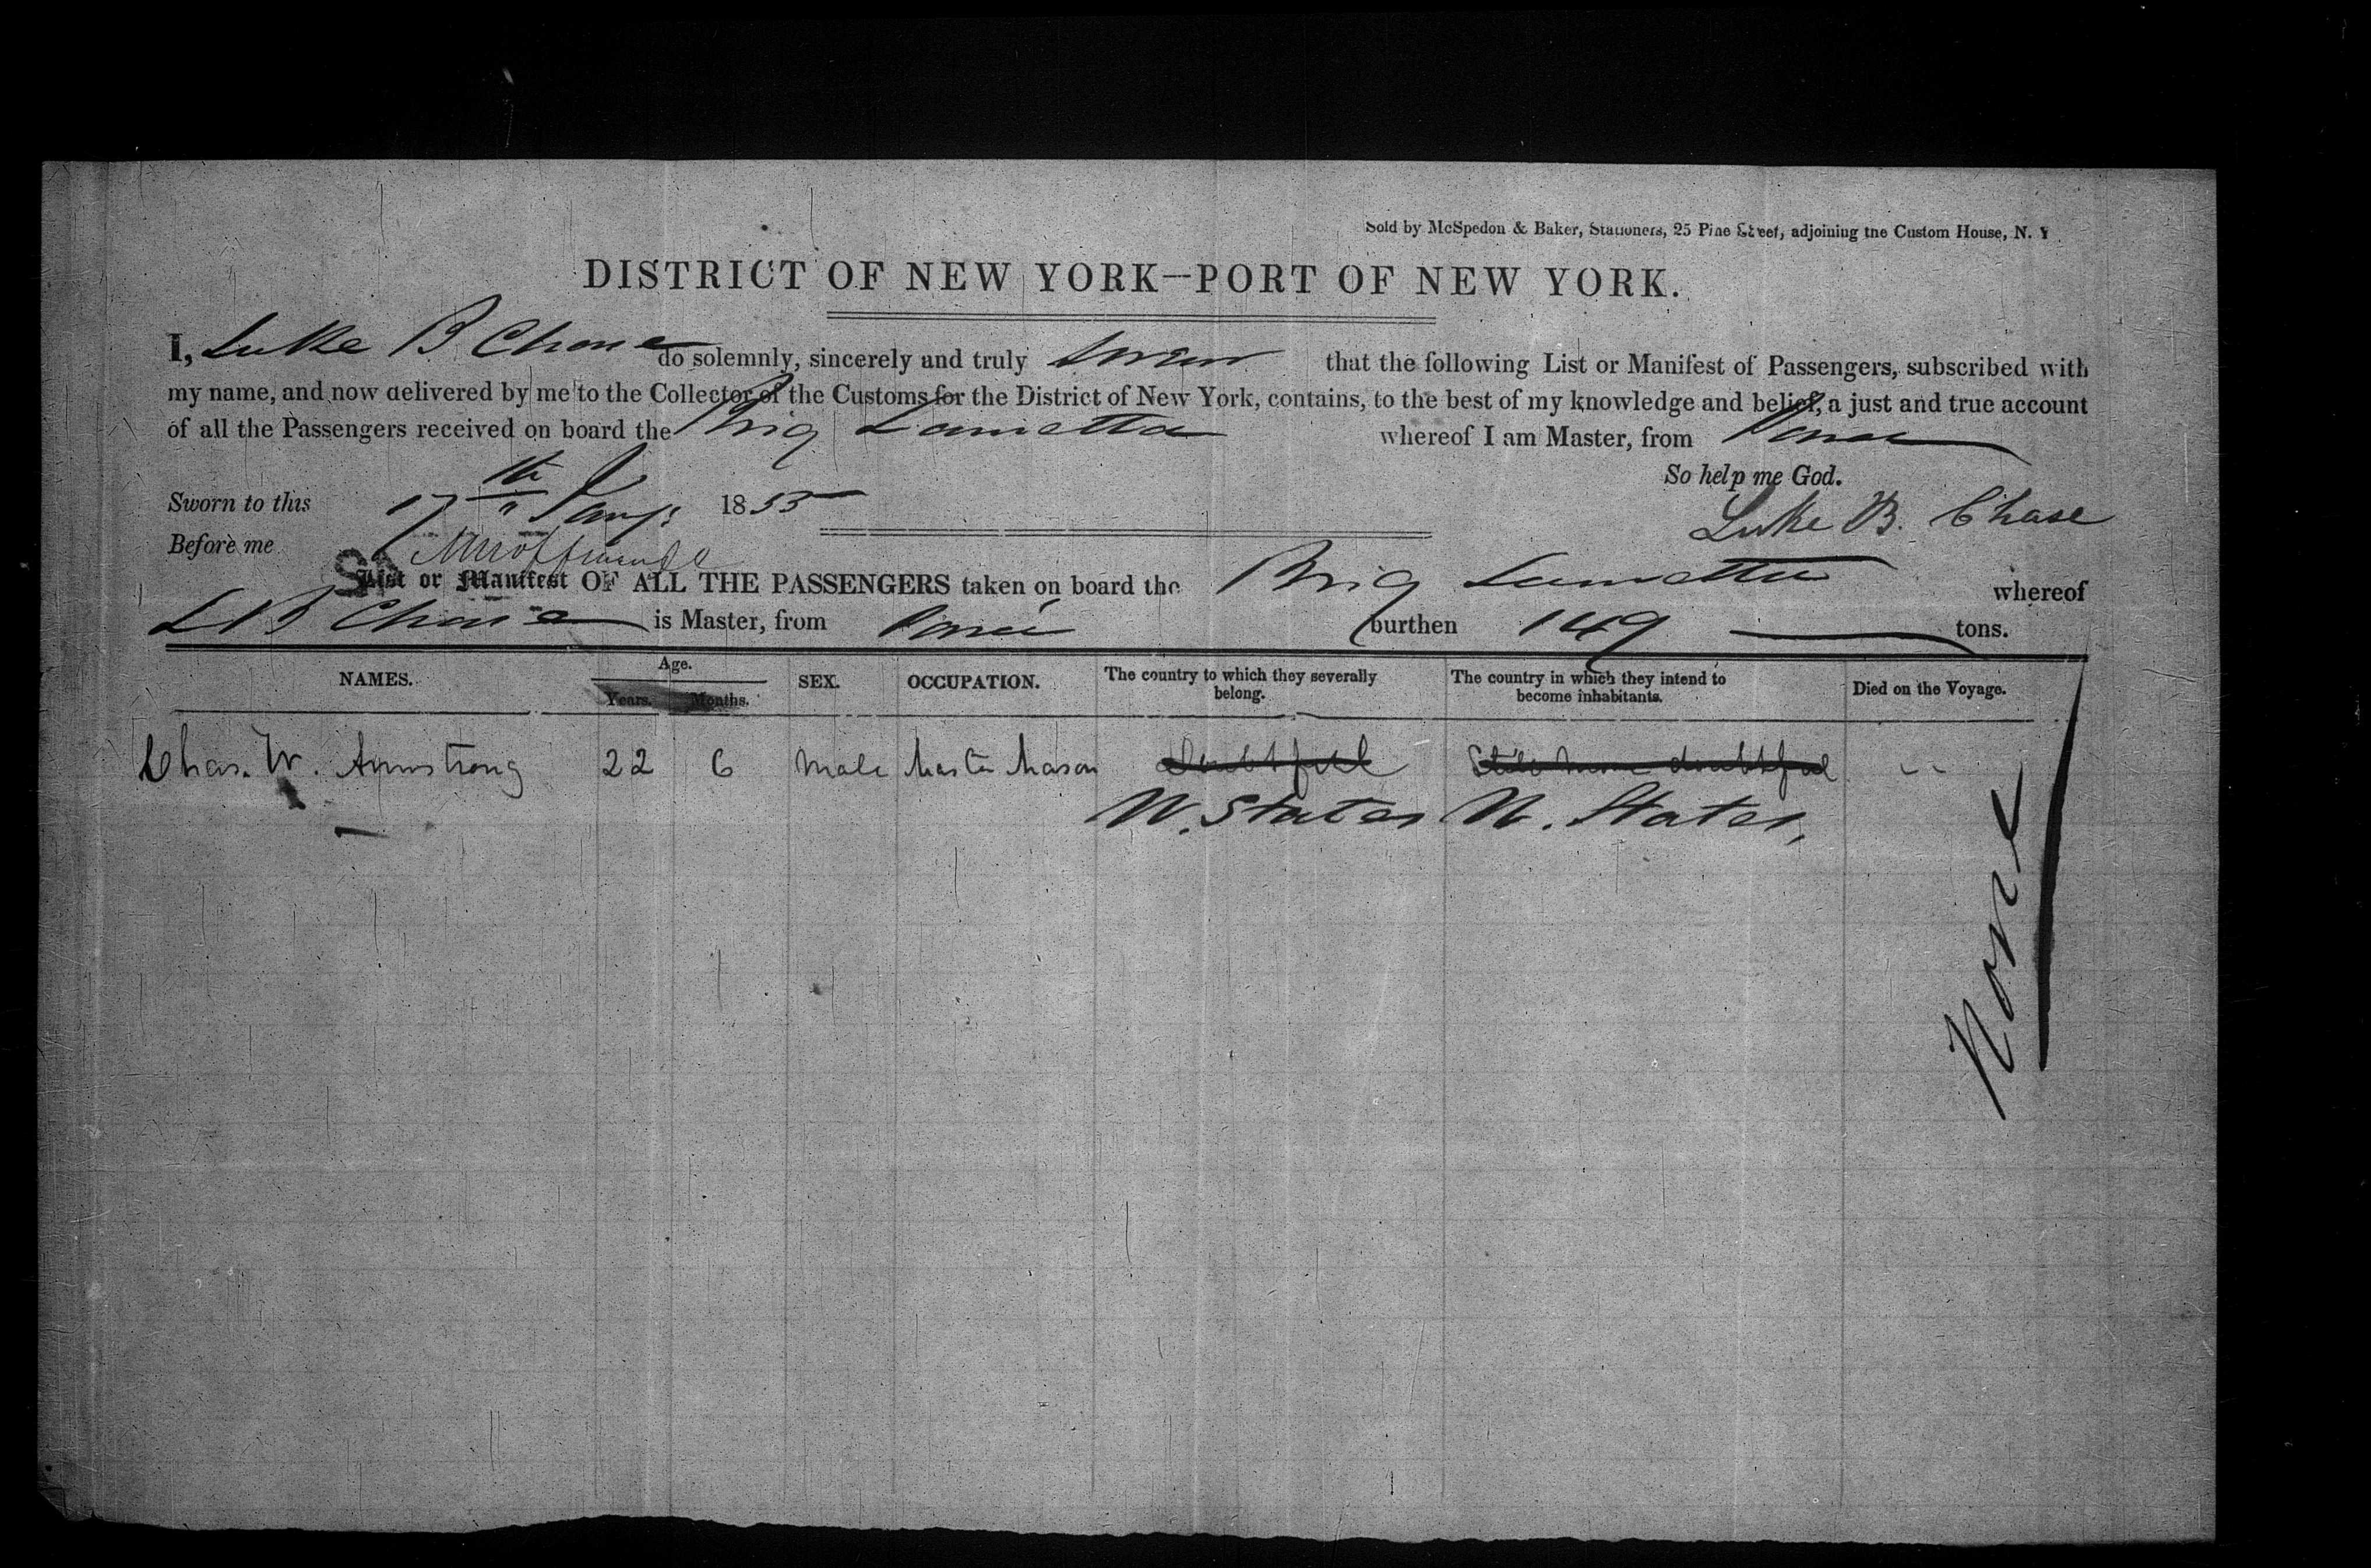 Sold by McSpedon & Baker, Stationers, 25 Pine Street, adjoining the Custom House, N. Y
DISTRICT OF NEW YORK—PORT OF NEW YORK.
I, Luke B Chase do solemnly, sincerely and truly swear that the following List or Manifest of Passengers, subscribed with
my name, and now delivered by me to the Collector of the Customs for the District of New York, contains, to the best of my knowledge and belief, a just and true account
of all the Passengers received on board the Brig Lametta whereof I am Master, from Ponce
So help me God.
Sworn to this 17th Jany. 1855 Luke B. Chase
Before me
List or Manifest OF ALL THE PASSENGERS taken on board the Brig Lametta whereof
L B Chase is Master, from Ponce burthen 149 tons.
NAMES. Age. Years. Months. SEX. OCCUPATION. The country to which they severally belong. The country in which they intend to become inhabitants. Died on the Voyage.
Chas. W. Armstrong 22 6 Male Master Mason Doubtfull Still more doubtful --
U. States U. States,
None